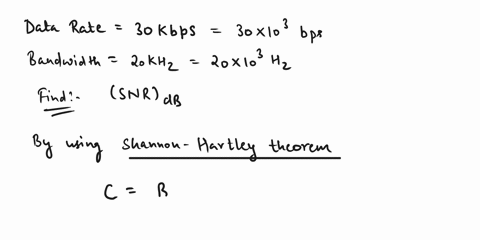 Data Rate = 30 Kbps = 30×10³ bps
Bandwidth = 20 KHz = 20×10³ Hz
Find:- (SNR)dB
By using Shannon-Hartley theorem
C = B